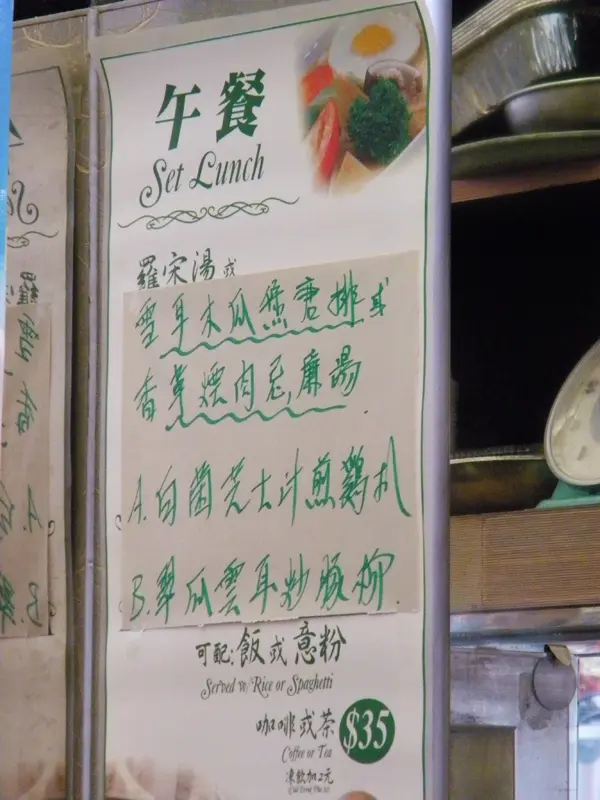 午餐
Set Lunch
羅宋湯或
雪耳木瓜煲唐排或
香草煙肉忌廉湯
A.白菌芝士汁煎鷄扒
B.翠瓜雲耳炒豚柳
可配:飯或意粉
Served w/Rice or Spaghetti
咖啡或茶
Coffee or Tea
$35
凍飲加2元